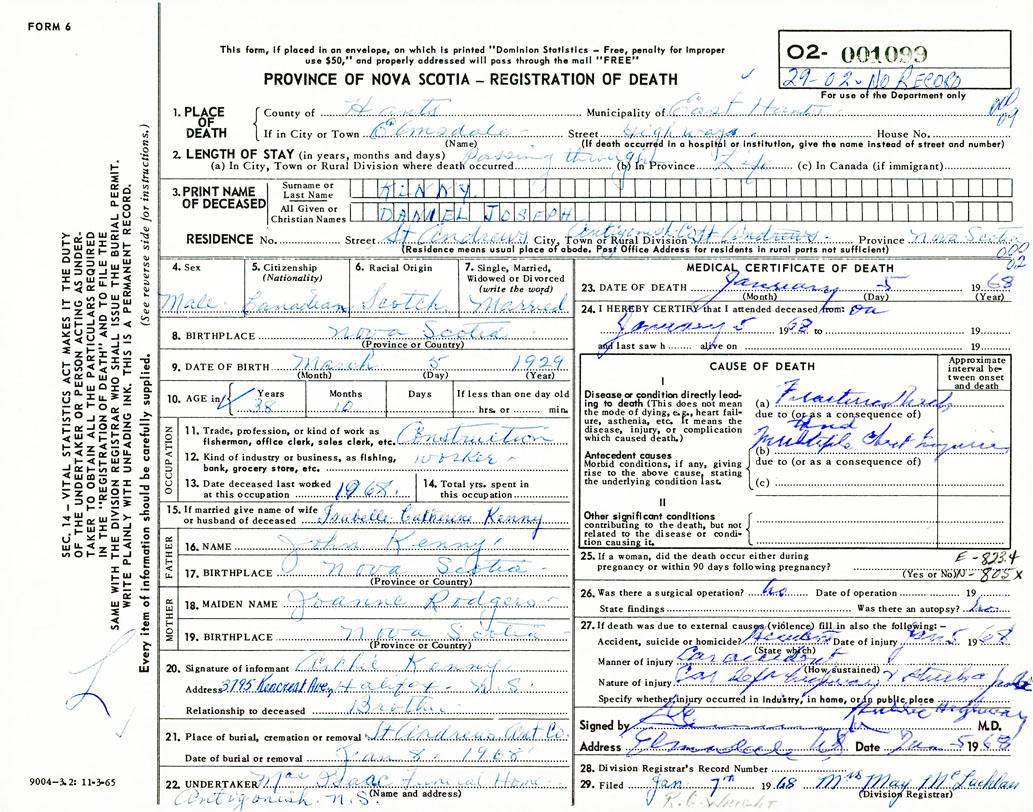 FORM 6
This form, if placed in an envelope, on which is printed "Dominion Statistics – Free, penalty for improper
use $50," and properly addressed will pass through the mail "FREE"
PROVINCE OF NOVA SCOTIA – REGISTRATION OF DEATH
02- 001099
29-02-NO RECORD
For use of the Department only
1. PLACE OF DEATH
County of Hants Municipality of East Hants
If in City or Town Elmsdale Street Highway House No.
(Name) (If death occurred in a hospital or institution, give the name instead of street and number)
2. LENGTH OF STAY (in years, months and days)
(a) In City, Town or Rural Division where death occurred passing through (b) In Province Life (c) In Canada (if immigrant)
3. PRINT NAME OF DECEASED
Surname or Last Name KINNY
All Given or Christian Names DANIEL JOSEPH
RESIDENCE No. Street St Andrews City, Town or Rural Division Antigonish Co St Andrews Province Nova Scotia
(Residence means usual place of abode. Post Office Address for residents in rural parts not sufficient)
4. Sex Male
5. Citizenship (Nationality) Canadian
6. Racial Origin Scotch
7. Single, Married, Widowed or Divorced (write the word) Married
8. BIRTHPLACE Nova Scotia
(Province or Country)
9. DATE OF BIRTH March 5 1929
(Month) (Day) (Year)
10. AGE in Years 38 Months 10 Days If less than one day old hrs. or min.
OCCUPATION
11. Trade, profession, or kind of work as fisherman, office clerk, sales clerk, etc. Construction
12. Kind of industry or business, as fishing, bank, grocery store, etc. worker
13. Date deceased last worked at this occupation 1968.
14. Total yrs. spent in this occupation
15. If married give name of wife or husband of deceased Isabelle Catherine Kenny
FATHER
16. NAME John Kenny
17. BIRTHPLACE Nova Scotia
(Province or Country)
MOTHER
18. MAIDEN NAME Joanne Rodgers
19. BIRTHPLACE Nova Scotia
(Province or Country)
20. Signature of informant Kenny
Address 3795 Kencrest Ave, Halifax N.S.
Relationship to deceased Brother
21. Place of burial, cremation or removal St Andrews Ant Co.
Date of burial or removal Jan 8, 1968
22. UNDERTAKER Mac Isaac Funeral Home
(Name and address)
Antigonish. N.S.
MEDICAL CERTIFICATE OF DEATH
23. DATE OF DEATH January 5 1968
(Month) (Day) (Year)
24. I HEREBY CERTIFY that I attended deceased from: on
January 5 1968 to 19
and last saw h alive on 19
CAUSE OF DEATH
Approximate interval between onset and death
I
Disease or condition directly leading to death (This does not mean the mode of dying, e.g., heart failure, asthenia, etc. It means the disease, injury, or complication which caused death.)
(a) Fractured
due to (or as a consequence of)
and
(b) Multiple Chest Injuries
due to (or as a consequence of)
(c)
Antecedent causes
Morbid conditions, if any, giving rise to the above cause, stating the underlying condition last.
II
Other significant conditions
contributing to the death, but not related to the disease or condition causing it.
25. If a woman, did the death occur either during pregnancy or within 90 days following pregnancy?
(Yes or No)
E-823.4
N-805x
26. Was there a surgical operation? No Date of operation 19
State findings Was there an autopsy?
27. If death was due to external causes (violence) fill in also the following: –
Accident, suicide or homicide? Accident Date of injury Jan 5 1968
(State which)
Manner of injury Car accident
(How sustained)
Nature of injury Car left highway & struck pole
Specify whether injury occurred in Industry, in home, or in public place
Public Highway
Signed by M.D.
Address Elmsdale NS Date Jan 5 1968
28. Division Registrar's Record Number
29. Filed Jan 7th 1968 Mrs May McLachlan
(Division Registrar)
R.G. WRIGHT
SEC. 14 – VITAL STATISTICS ACT MAKES IT THE DUTY
OF THE UNDERTAKER OR PERSON ACTING AS UNDER-
TAKER TO OBTAIN ALL THE PARTICULARS REQUIRED
IN THE "REGISTRATION OF DEATH" AND TO FILE THE
SAME WITH THE DIVISION REGISTRAR WHO SHALL ISSUE THE BURIAL PERMIT.
WRITE PLAINLY WITH UNFADING INK. THIS IS A PERMANENT RECORD.
Every item of information should be carefully supplied. (See reverse side for instructions.)
9004-3.2: 11-3-65